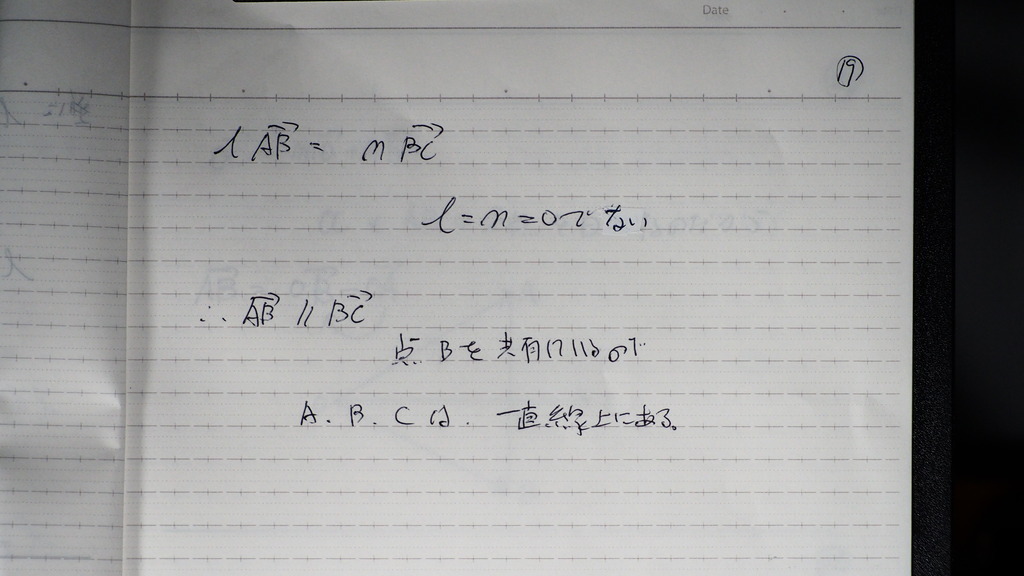 Date
⑲
l AB→ = n BC→
l = n = 0 でない
∴ AB→ // BC→
点 B を 共有しているので
A. B. C は. 一直線上にある。